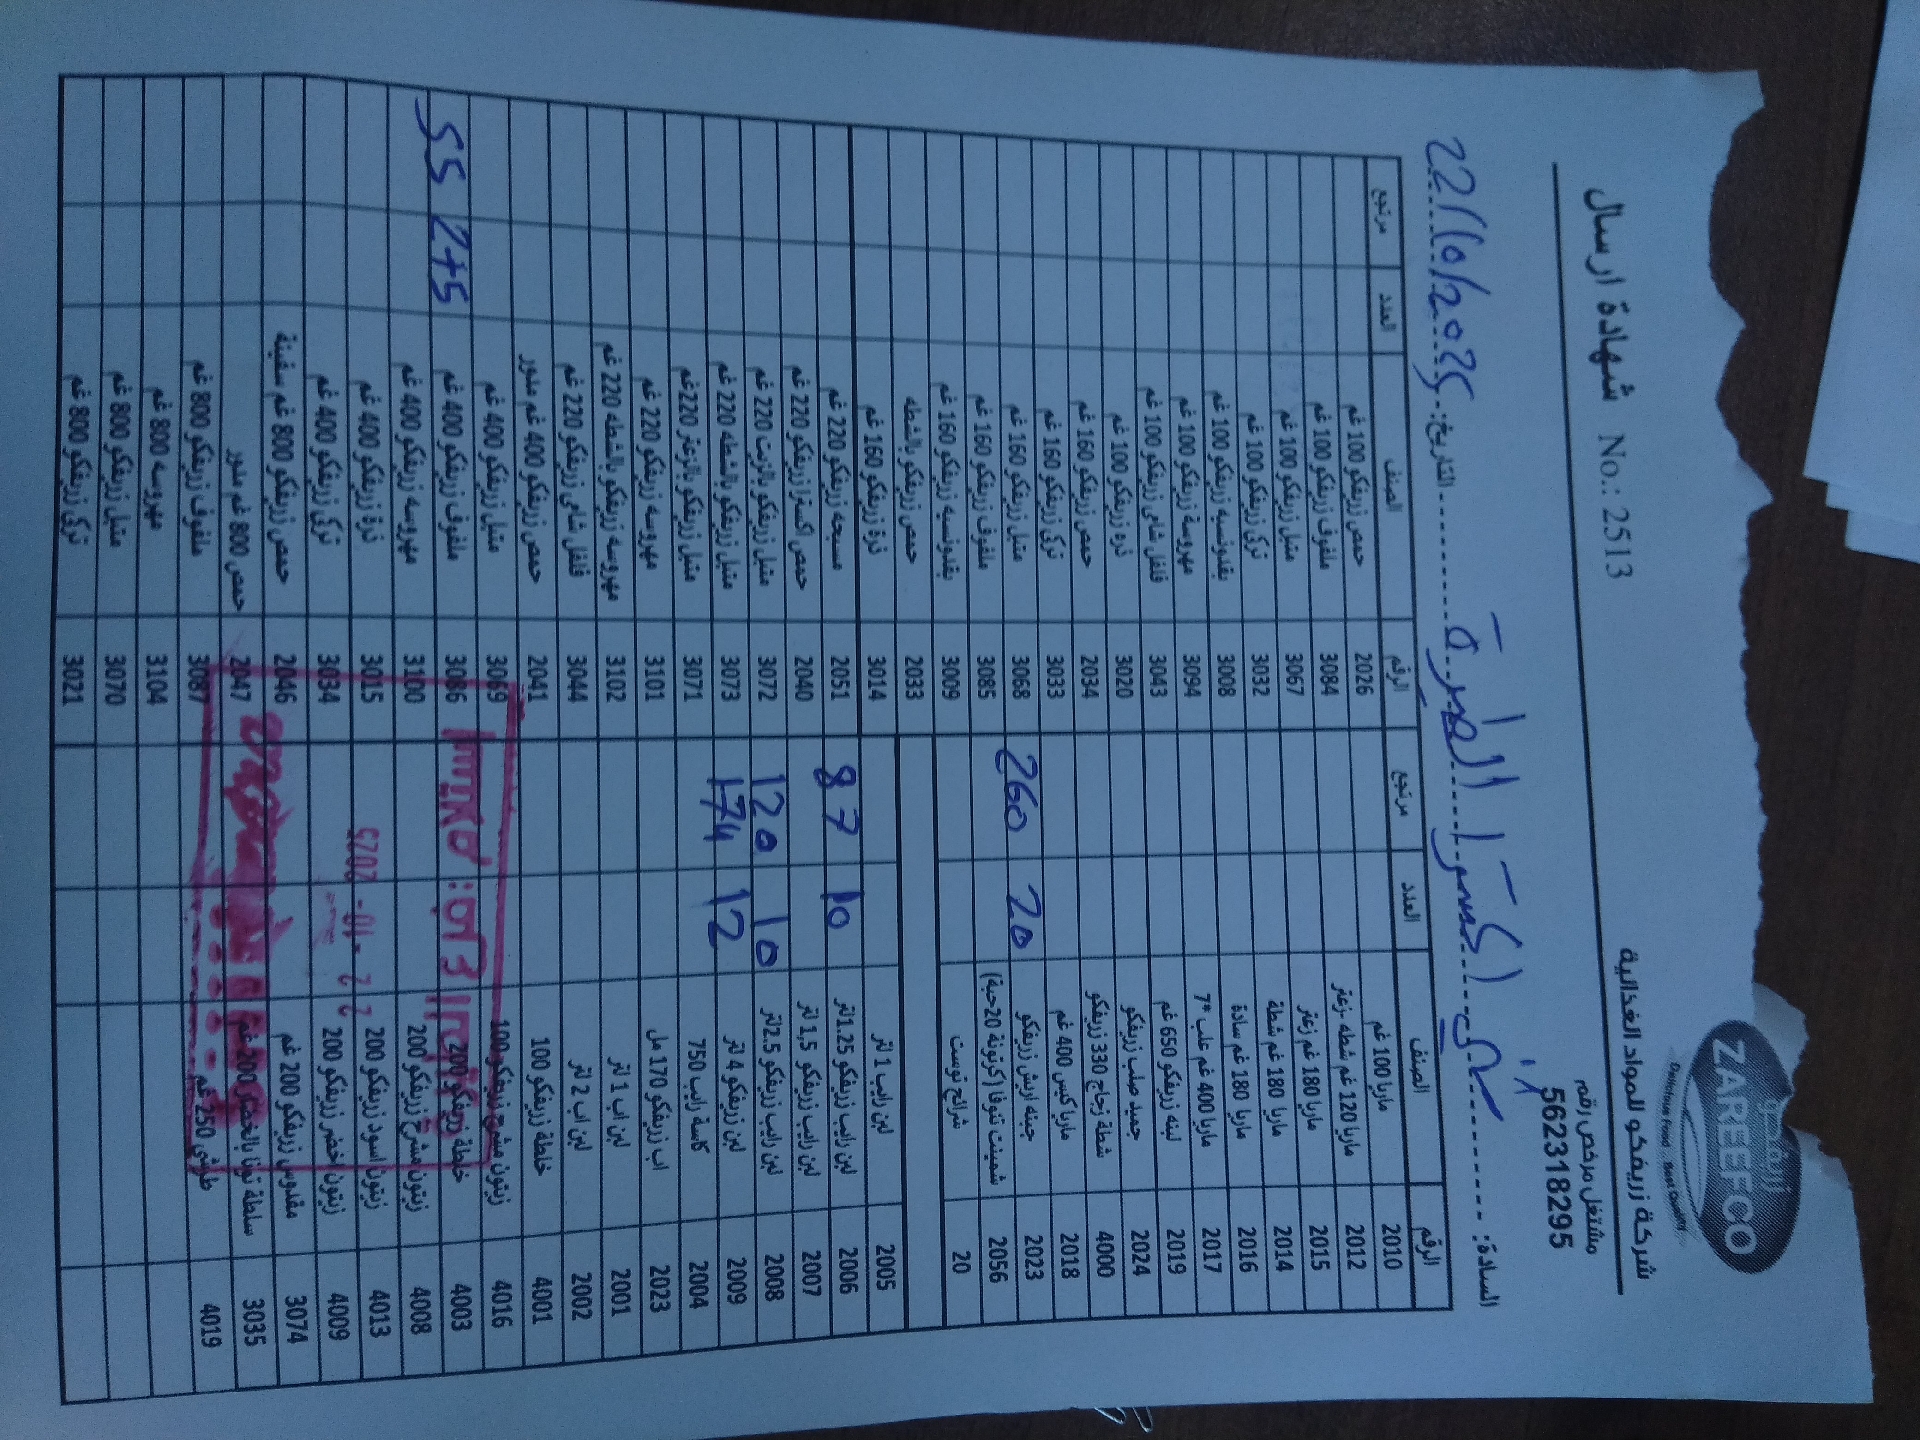 شركة زريفكو للمواد الغذائية
مشتغل مرخص رقم
562318295
ZAREEFCO
Delicious Food .. Best Quality
شهادة ارسال No.: 2513
السادة: التاريخ: 22/10/2025
الرقم الصنف العدد مرتجع الرقم الصنف العدد مرتجع
2010 ماريا 100 غم 2026 حمص زريفكو 100 غم
2012 ماريا 120 غم شطه -زعتر 3084 ملفوف زريفكو 100 غم
2015 ماريا 180 غم زعتر 3067 متبل زريفكو 100 غم
2014 ماريا 180 غم شطة 3032 تركي زريفكو 100 غم
2016 ماريا 180 غم سادة 3008 بقدونسيه زريفكو 100 غم
2017 ماريا 400 غم علب *7 3094 مهروسة زريفكو 100 غم
2019 لبنه زريفكو 650 غم 3043 فلفل شامي زريفكو 100 غم
2024 جميد صلب زريفكو 3020 ذره زريفكو 100 غم
4000 شطة زجاج 330 زريفكو 2034 حمص زريفكو 160 غم
2018 ماريا كيس 400 غم 3033 تركي زريفكو 160 غم
2023 جبنه اريش زريفكو 20 260 3068 متبل زريفكو 160 غم
2056 شمينت تنوفا (كرتونة 20حبة) 3085 ملفوف زريفكو 160 غم
20 شرائح توست 3009 بقدونسيه زريفكو 160 غم
2033 حمص زريفكو بالشطه
2005 لبن رايب 1 لتر 3014 ذرة زريفكو 160 غم
2006 لبن رايب زريفكو 1.25لتر 10 87 2051 مسبحه زريفكو 220 غم
2007 لبن رايب زريفكو 1,5 لتر 2040 حمص اكسترا زريفكو 220 غم
2008 لبن رايب زريفكو 2.5لتر 10 120 3072 متبل زريفكو بالزيت 220 غم
2009 لبن زريفكو 4 لتر 12 174 3073 متبل زريفكو بالشطه 220 غم
2004 كاسة رايب 750 3071 متبل زريفكو بالزعتر 220غم
2023 اب زريفكو 170 مل 3101 مهروسه زريفكو 220 غم
2001 لبن اب 1 لتر 3102 مهروسه زريفكو بالشطه 220 غم
2002 لبن اب 2 لتر 3044 فلفل شامي زريفكو 220 غم
4001 خلطة زريفكو 100 2041 حمص زريفكو 400 غم مدور
4016 زيتون مشرح زريفكو 100 3069 متبل زريفكو 400 غم
4003 خلطة زريفكو 200 3086 ملفوف زريفكو 400 غم 2+5 55
4008 زيتون مشرح زريفكو 200 3100 مهروسه زريفكو 400 غم
4013 زيتون اسود زريفكو 200 3015 ذرة زريفكو 400 غم
4009 زيتون اخضر زريفكو 200 3034 تركي زريفكو 400 غم
3074 مقدوس زريفكو 200 غم 2046 حمص زريفكو 800 غم سفينة
3035 سلطة تونا بالخضار 200 غم 2047 حمص 800 غم مدور
4019 طرشي 250 غم 3087 ملفوف زريفكو 800 غم
3104 مهروسه 800 غم
3070 متبل زريفكو 800 غم
3021 تركي زريفكو 800 غم
22 -10- 2025